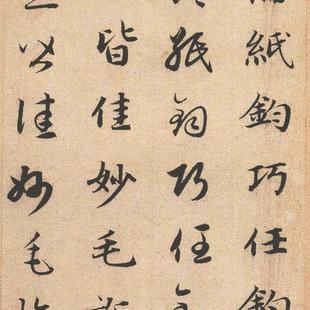 紙鈞巧任釣
紙鈞巧任
皆佳妙毛
皆佳妙毛